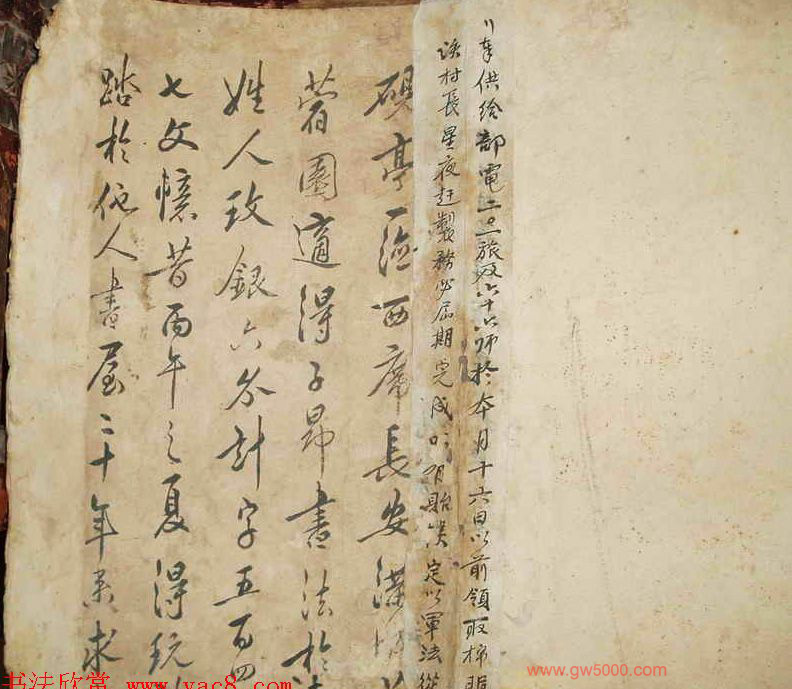 奉供給部電二〇二旅及六十六師於本月十六日以前領取棉服
該村長星夜赶製務必屆期完成 貽誤定以軍法從
硯亭 西席長安講
著園適得子昂書法於
姓人玫銀六分計字五百四
七文憶昔丙午之夏得玩
踏於他人書屋二十年来求
书法欣赏 www.yac8.com
www.gw5000.com